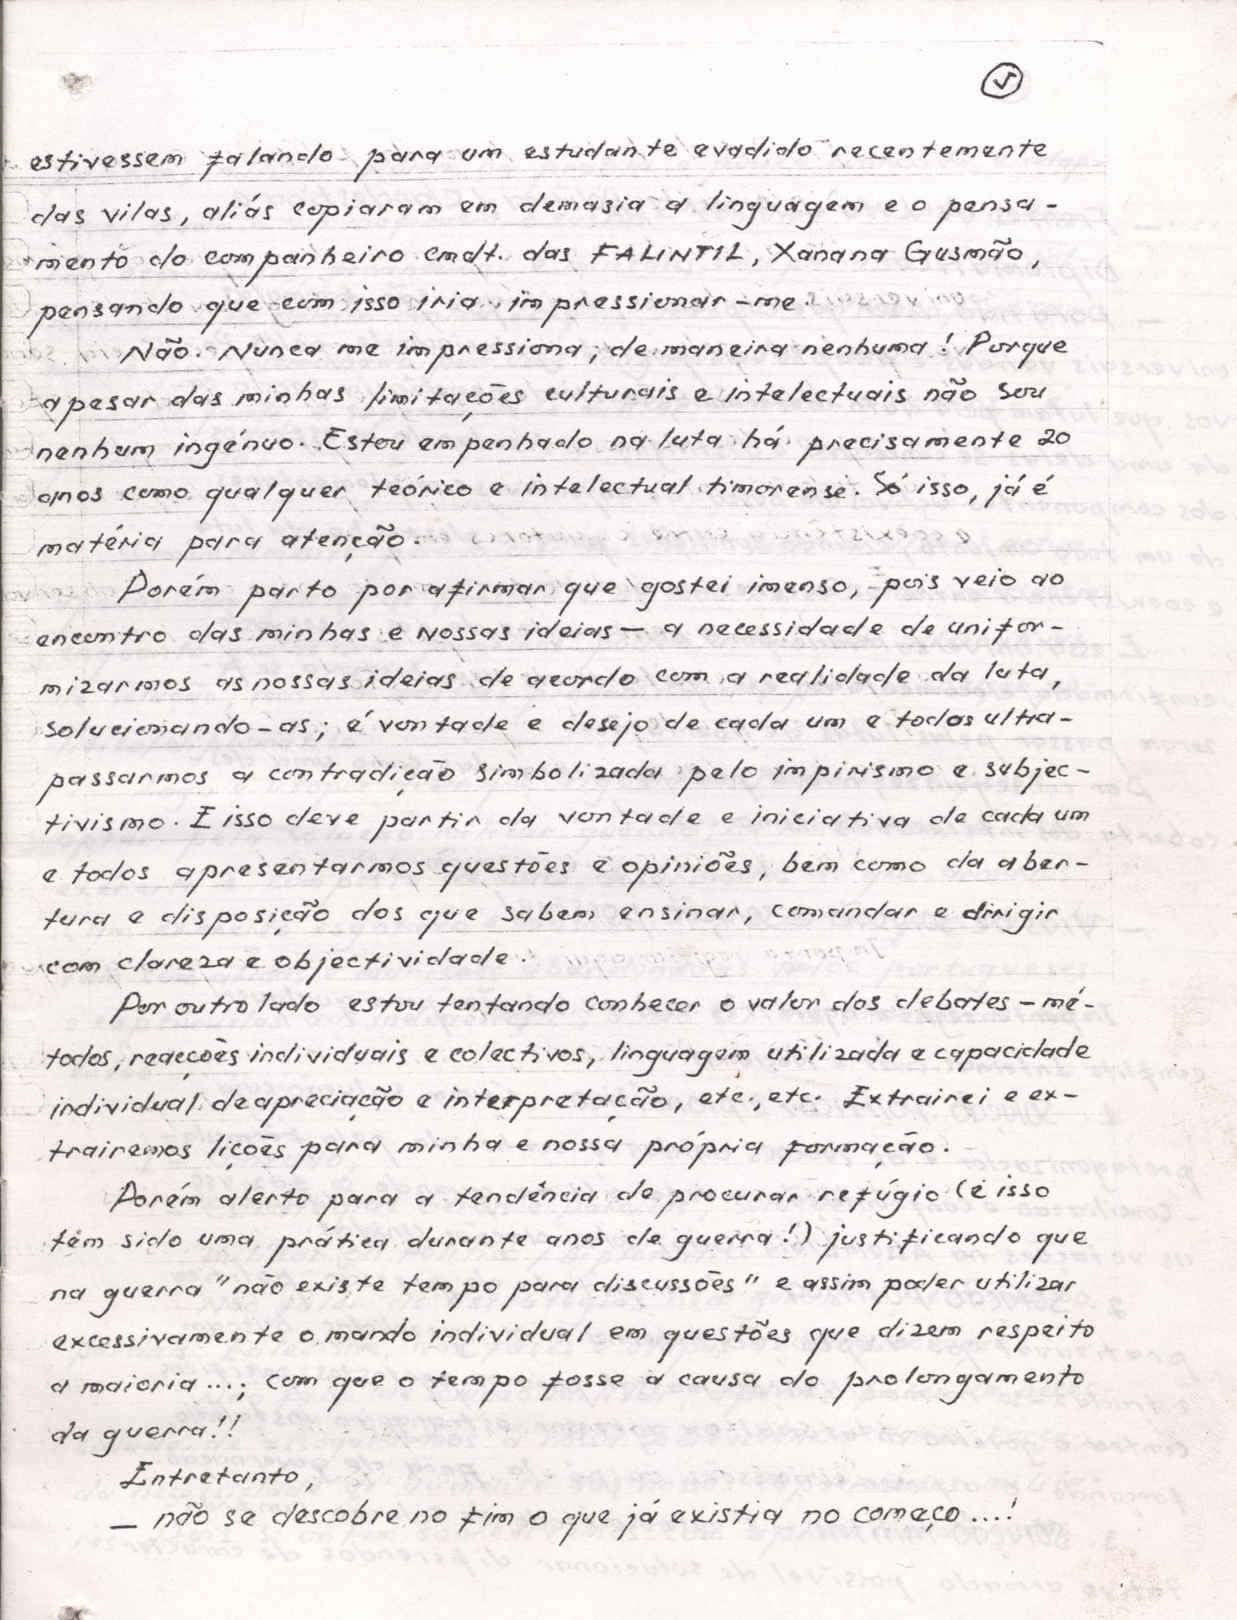 5
estivessem falando para um estudante evadido recentemente
das vilas, aliás copiaram em demasia a linguagem e o pensa-
mento do companheiro cmdt. das FALINTIL, Xanana Gusmão,
pensando que com isso iria impressionar-me.
Não. Nunca me impressiona, de maneira nenhuma! Porque
apesar das minhas limitações culturais e intelectuais não sou
nenhum ingénuo. Estou empenhado na luta há precisamente 20
anos como qualquer teórico e intelectual timorense. Só isso, já é
matéria para atenção.
Porém parto por afirmar que gostei imenso, pois veio ao
encontro das minhas e nossas ideias — a necessidade de unifor-
mizarmos as nossas ideias de acordo com a realidade da luta,
solucionando-as; é vontade e desejo de cada um e todos ultra-
passarmos a contradição simbolizada pelo impirismo e subjec-
tivismo. E isso deve partir da vontade e iniciativa de cada um
e todos apresentarmos questões e opiniões, bem como da aber-
tura e disposição dos que sabem ensinar, comandar e dirigir
com clareza e objectividade.
Por outro lado estou tentando conhecer o valor dos debates - mé-
todos, reacções individuais e colectivos, linguagem utilizada e capacidade
individual de apreciação e interpretação, etc., etc. Extrairei e ex-
trairemos lições para minha e nossa própria formação.
Porém alerto para a tendência de procurar refúgio (e isso
têm sido uma prática durante anos de guerra!) justificando que
na guerra "não existe tempo para discussões" e assim poder utilizar
excessivamente o mando individual em questões que dizem respeito
a maioria...; com que o tempo fosse a causa do prolongamento
da guerra!!
Entretanto,
— não se descobre no fim o que já existia no começo...!